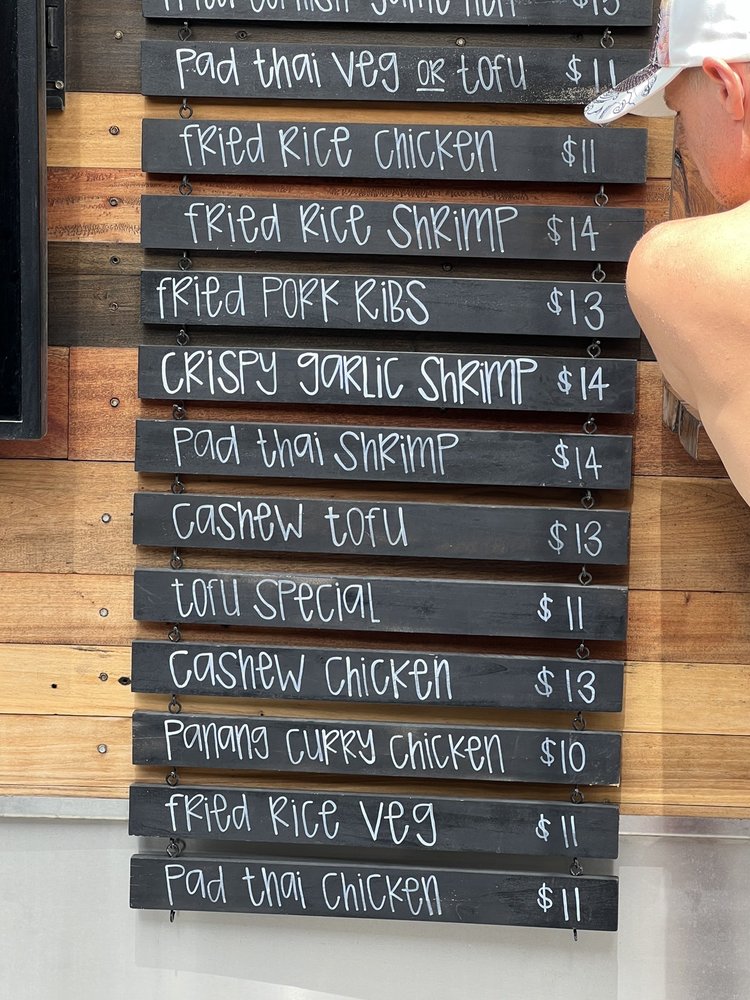 Pad Thai Veg OR Tofu $11
Fried Rice Chicken $11
Fried Rice Shrimp $14
Fried Pork Ribs $13
Crispy Garlic Shrimp $14
Pad Thai Shrimp $14
Cashew Tofu $13
Tofu Special $11
Cashew Chicken $13
Panang Curry Chicken $10
Fried Rice Veg $11
Pad Thai Chicken $11